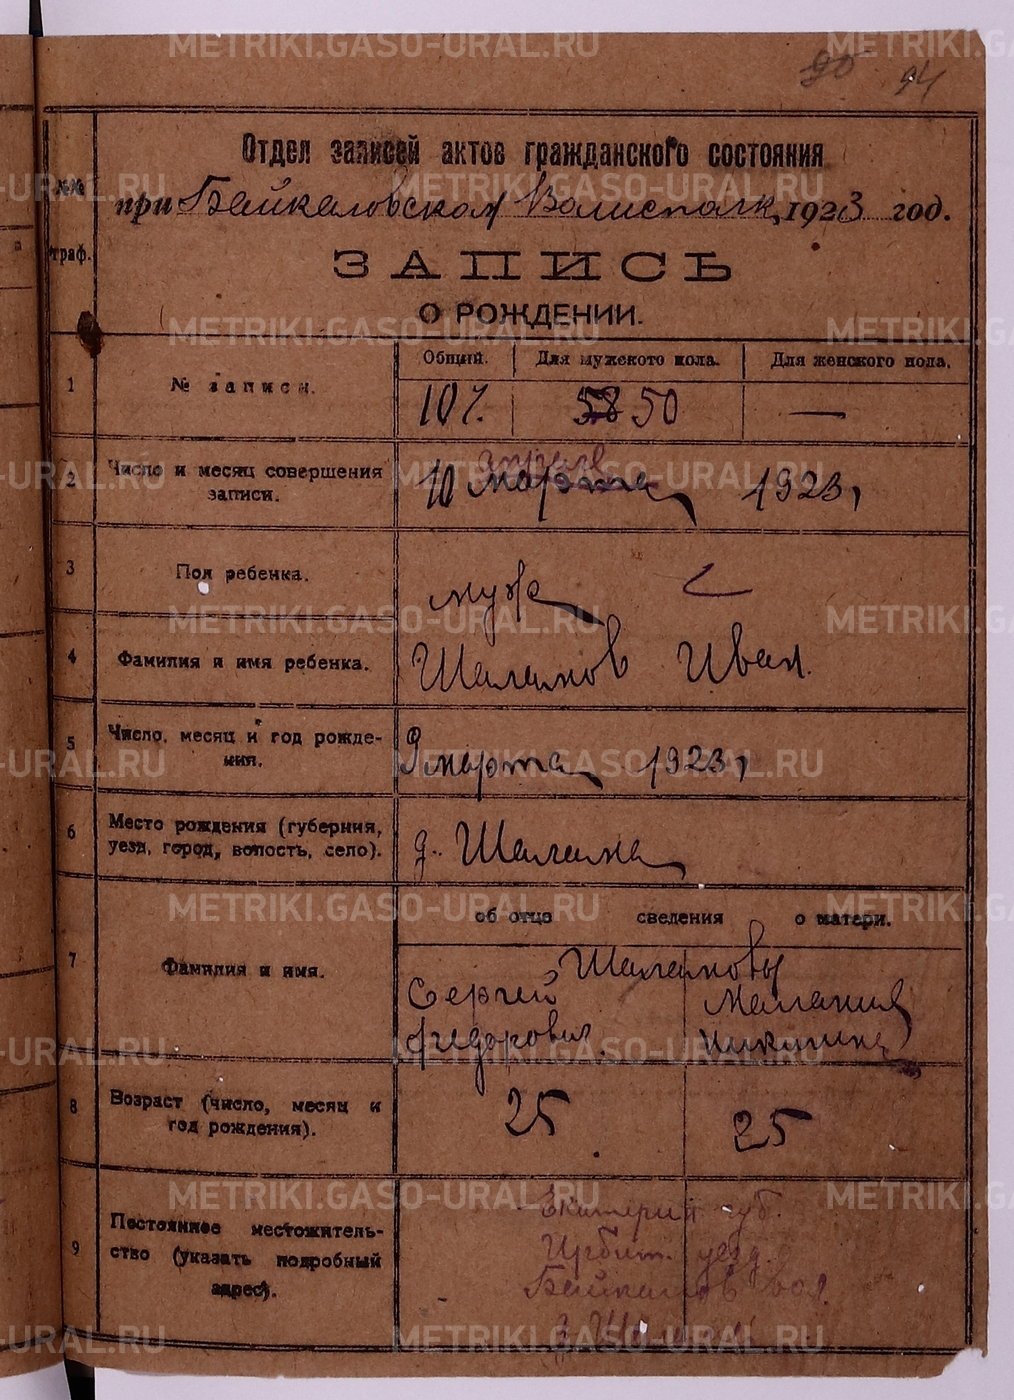 90 94
Отдел записей актов гражданского состояния
№№
граф.
при Байкаловском Волисполк. 1923 год.
ЗАПИСЬ
О РОЖДЕНИИ.
1 № записи.
Общий. Для мужского пола. Для женского пола.
107. 58 50 —
2 Число и месяц совершения
записи.
апреля
10 марта 1923,
3 Пол ребенка.
муж
4 Фамилия и имя ребенка.
Шаламов Иван.
5 Число, месяц и год рожде-
ния.
9 марта 1923,
6 Место рождения (губерния,
уезд, город, волость, село).
д. Шалама
об отце сведения о матери.
7 Фамилия и имя.
Шаламовы
Сергей Мелания
Федоров.
8 Возраст (число, месяц и
год рождения).
25 25
9 Постоянное местожитель-
ство (указать подробный
адрес).
Екатерин губ.
Ирбит. уезд.
Байкалов вол.
METRIKI.GASO-URAL.RU